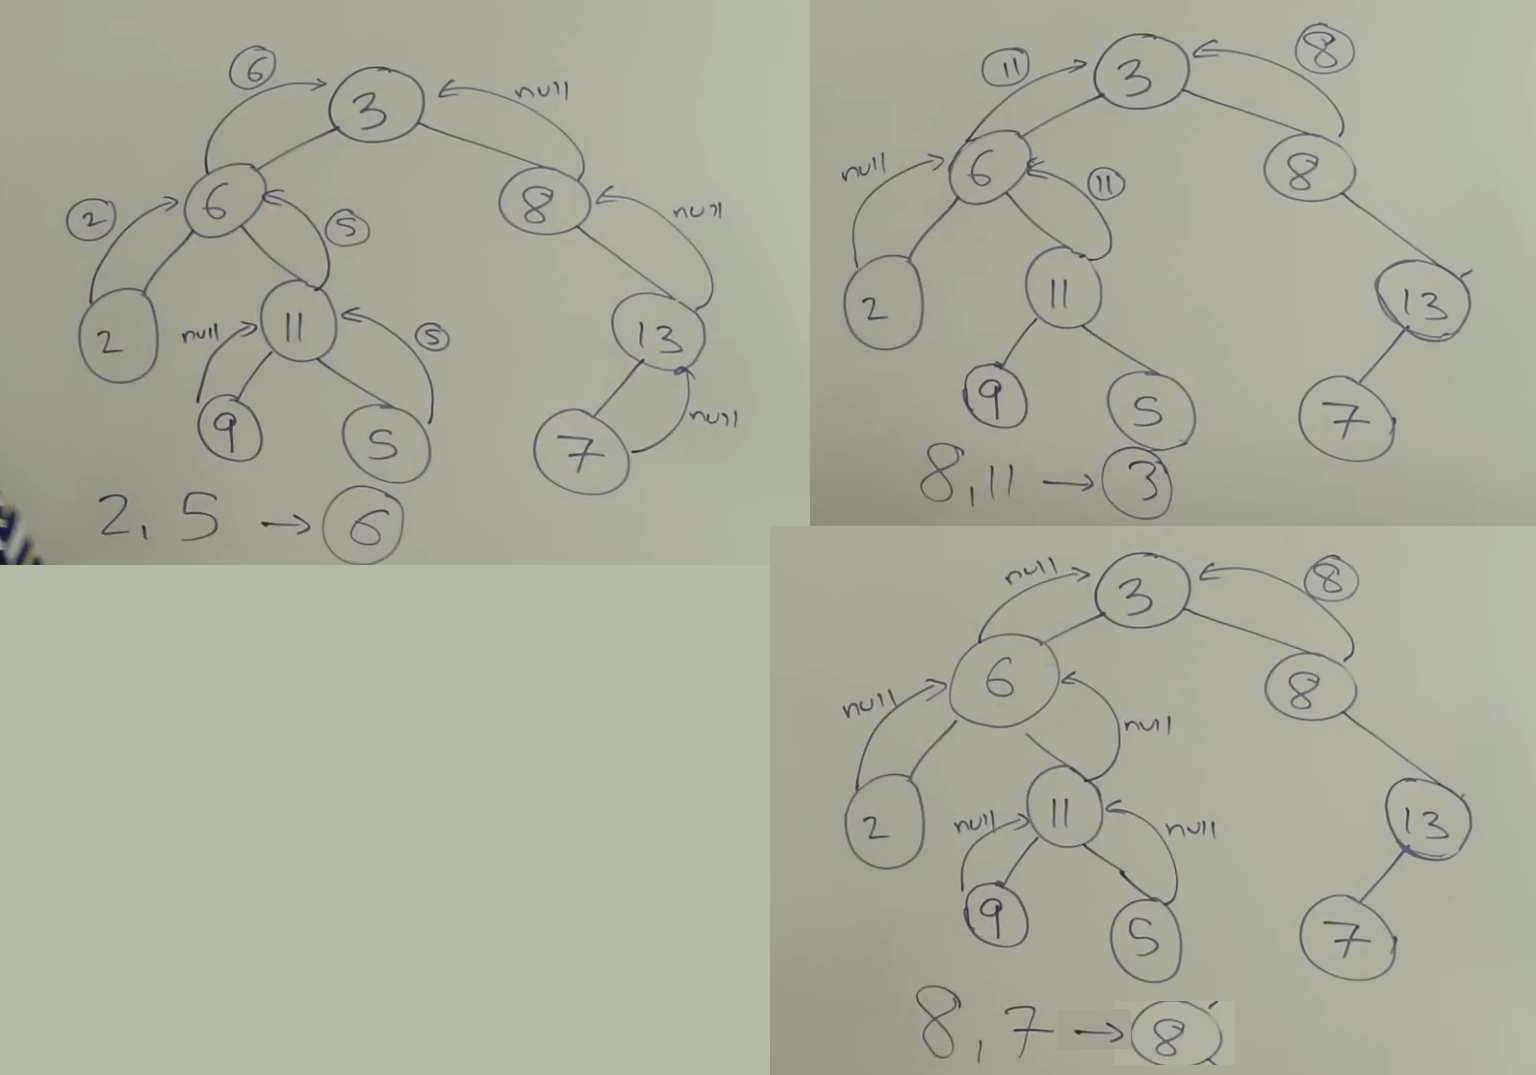 6
3
null
2
6
5
8
null
2
null
11
5
13
9
5
7
null
2, 5 → 6
11
3
8
null
6
11
8
2
11
13
9
5
7
8, 11 → 3
null
3
8
null
6
null
8
2
null
11
null
13
9
5
7
8, 7 → 8